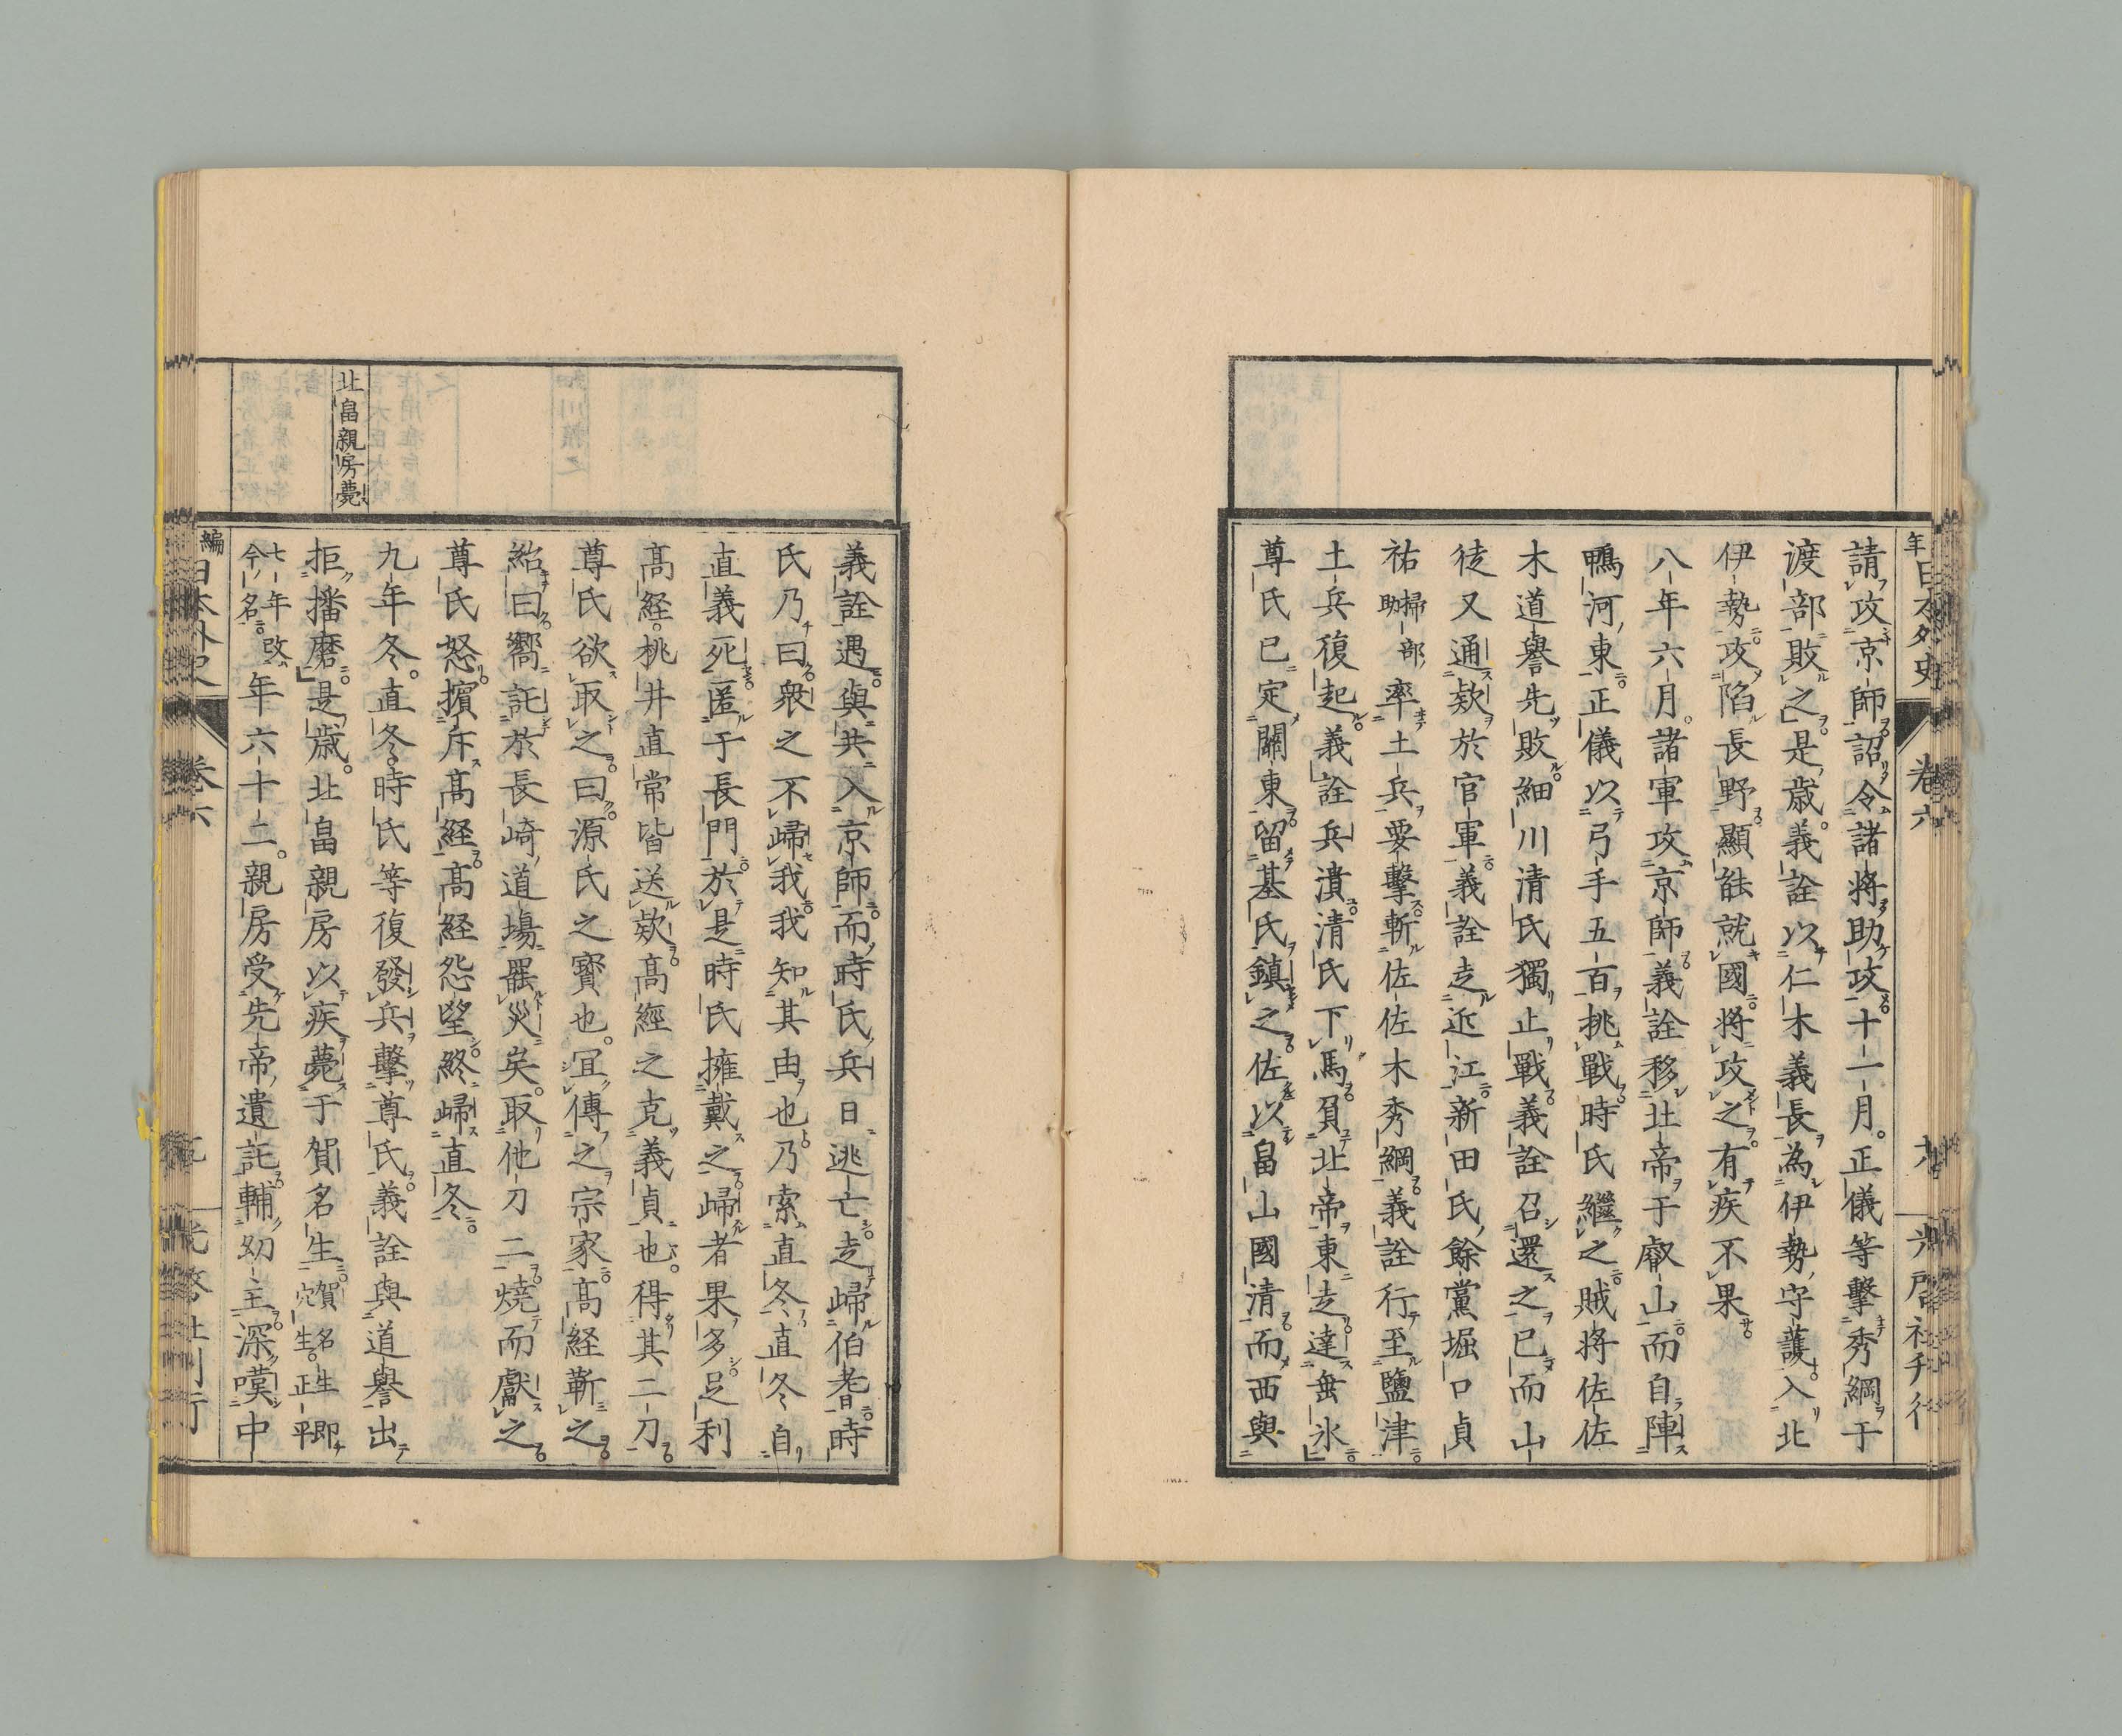 請攻京師詔令諸将助攻十一月正儀等擊秀綱于
渡部敗之是歳義詮以仁木義長為伊勢守護入北
伊勢攻陷長野顯能就國将攻之有疾不果
八年六月諸軍攻京師義詮移北帝于叡山而自陣
鴨河東正儀以弓手五百挑戰時氏繼之賊将佐佐
木道譽先敗細川清氏獨止戰義詮召還之已而山
徒又通欵於官軍義詮走近江新田氏餘黨堀口貞
祐掃部助率土兵要擊斬佐佐木秀綱義詮行至鹽津
土兵復起義詮兵潰清氏下馬負北帝東走達垂氷
尊氏已定關東留基氏鎮之佐以畠山國清而西與
義詮遇與共入京師而時氏兵日逃亡走歸伯耆時
氏乃曰衆之不歸我我知其由也乃索直冬直冬自
直義死匿于長門於是時氏擁戴之歸者果多足利
髙経桃井直常皆送欵髙經之克義貞也得其二刀
尊氏欲取之曰源氏之寳也冝傳之宗家髙経靳之
紿曰嚮託於長崎道場罹災矣取他刀二燒而獻之
尊氏怒擯斥髙経髙経怨望終歸直冬
九年冬直冬時氏等復發兵擊尊氏義詮與道譽出
拒播磨是歳北畠親房以疾薨于賀名生賀名生即穴生正平
七年改今名年六十二親房受先帝遺託輔幼主深嘆中
北畠親房薨
卷六
卷六